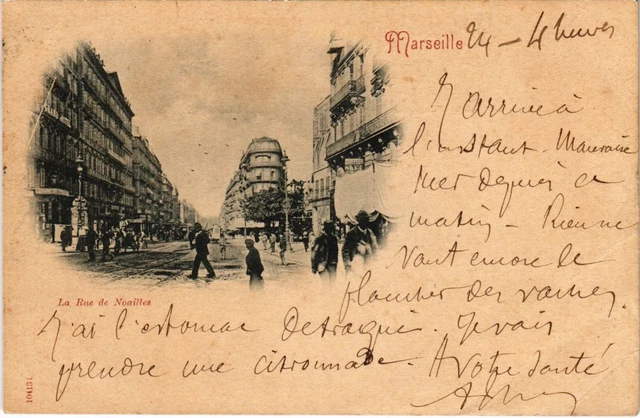 Marseille 24 - 4 heures
J'arrive à
l'instant - Mauvaise
Mer depuis ce
matin - Rien ne
vaut encore le
plancher des vaches.
La Rue de Noailles
J'ai l'estomac detraqué. Je vais
prendre une citronnade. A votre santé
104134